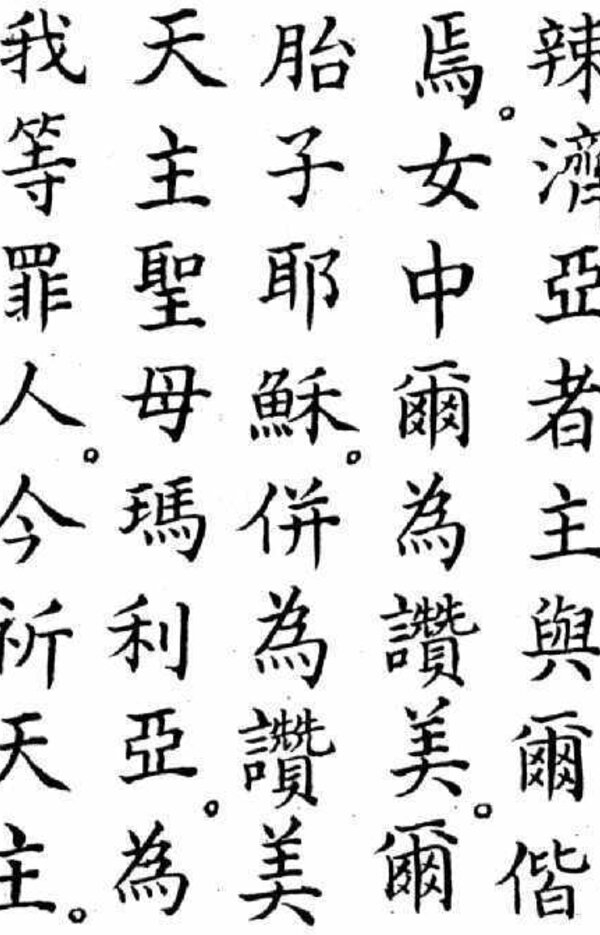 辣濟亞者主與爾偕
焉。女中爾為讚美。爾
胎子耶穌。併為讚美
天主聖母瑪利亞。為
我等罪人。今祈天主。